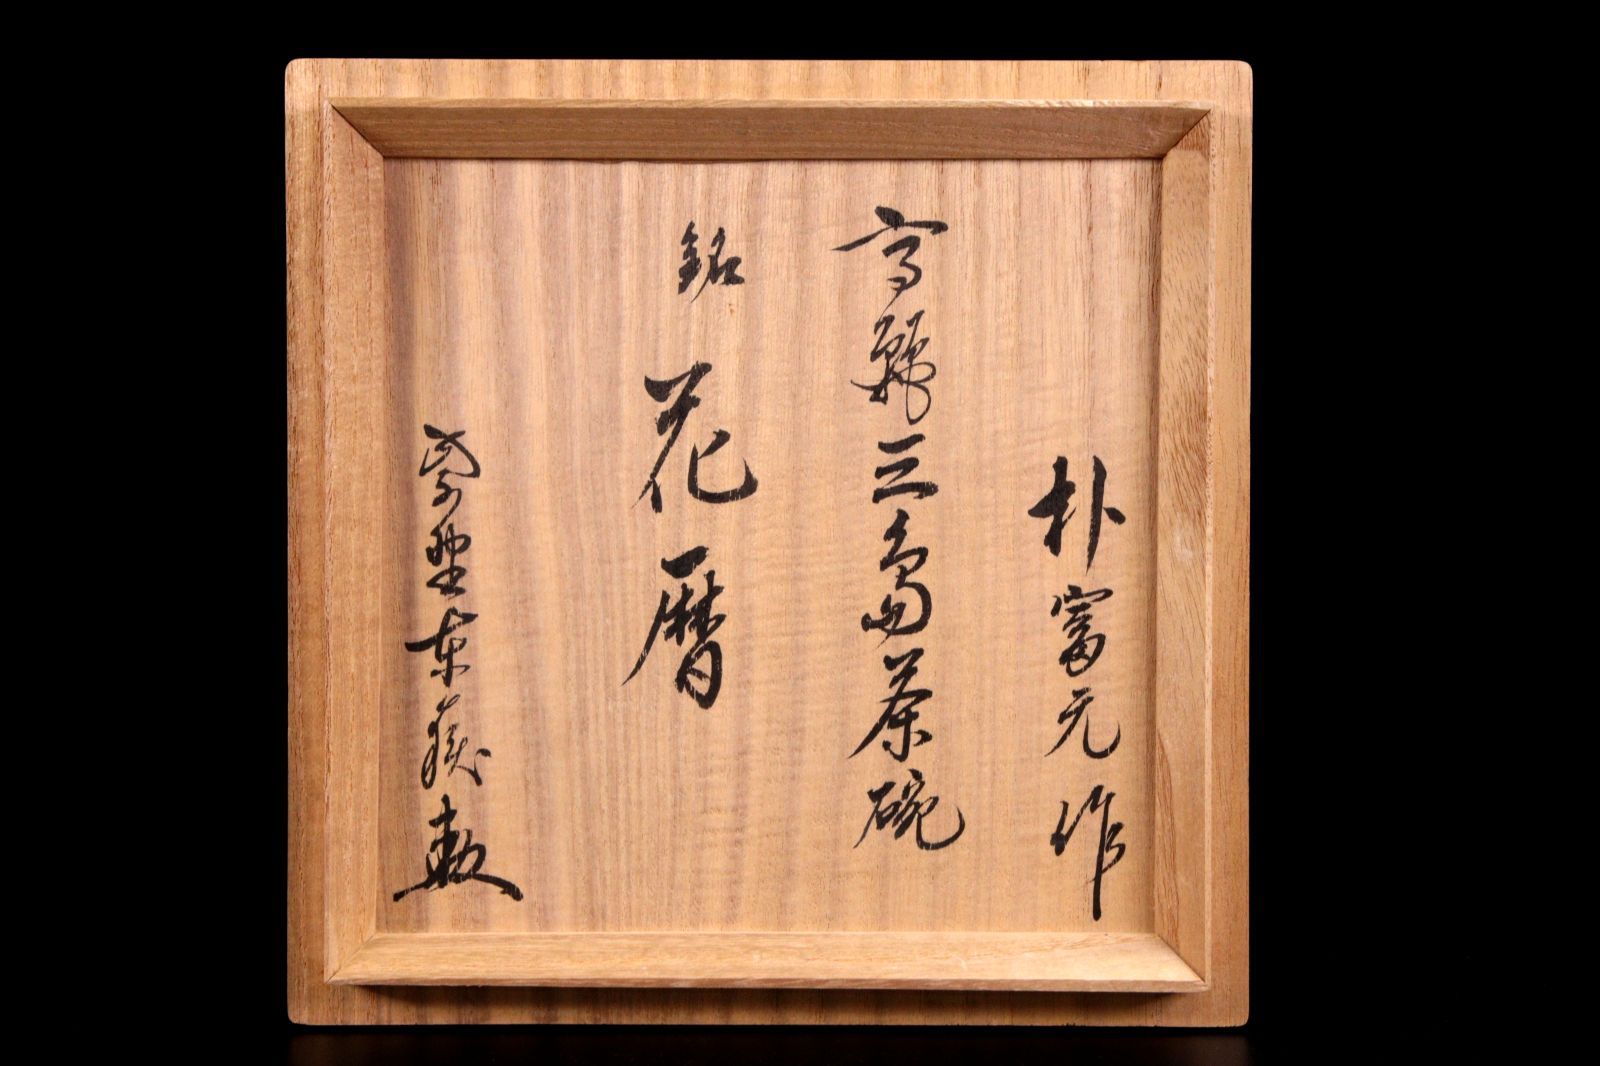 朴富元作
高麗三島茶碗
銘 花暦
紫野東嶽